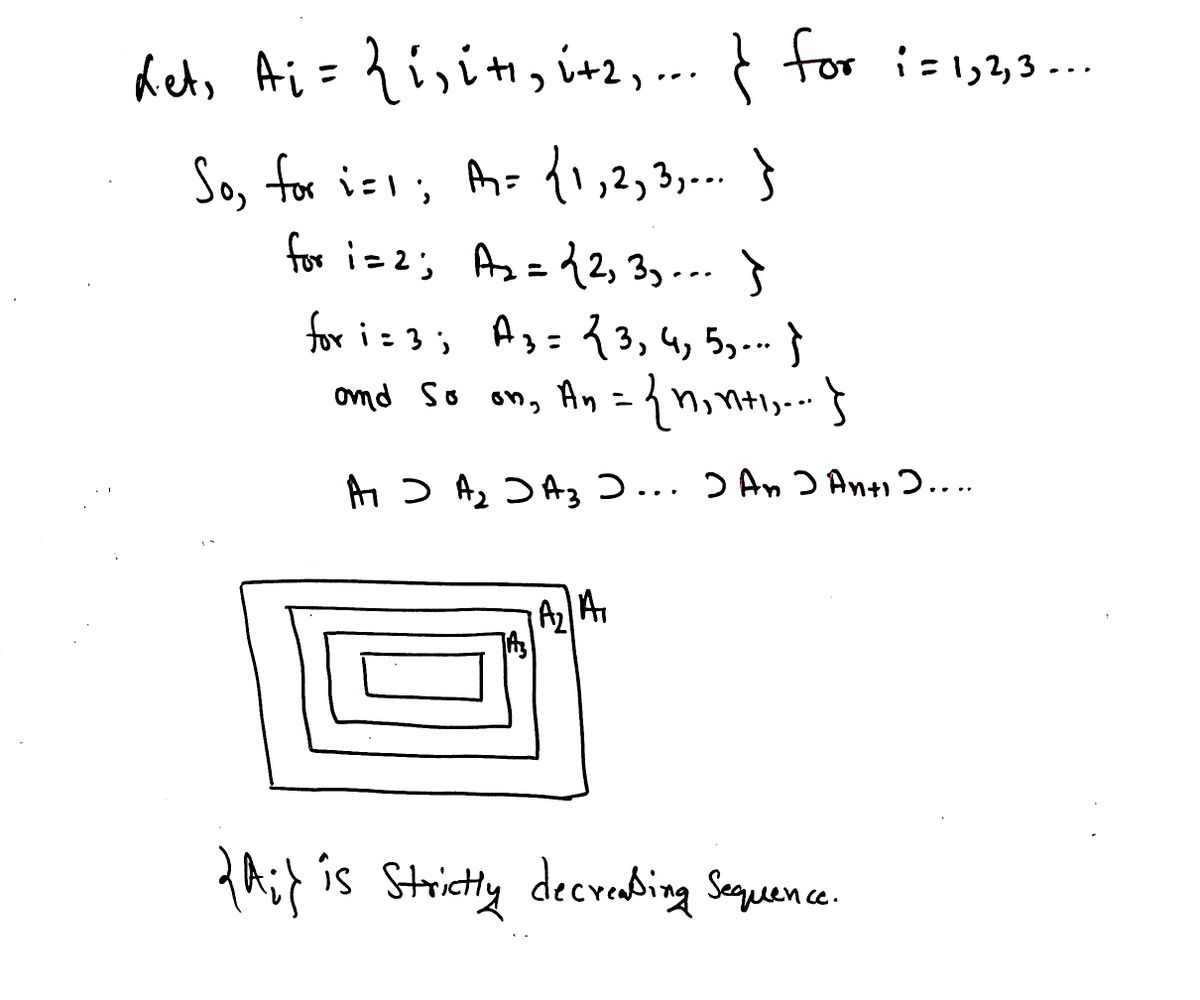 Let, Ai = {i, i+1, i+2, ... } for i = 1,2,3 ...
So, for i=1 ; A1 = {1,2,3,... }
for i=2 ; A2 = {2, 3, ... }
for i = 3 ; A3 = {3, 4, 5, ... }
and so on, An = {n, n+1, ... }
A1 ⊃ A2 ⊃ A3 ⊃ ... ⊃ An ⊃ An+1 ⊃ ....
A2 A1
A3
{Ai} is Strictly decreasing Sequence.